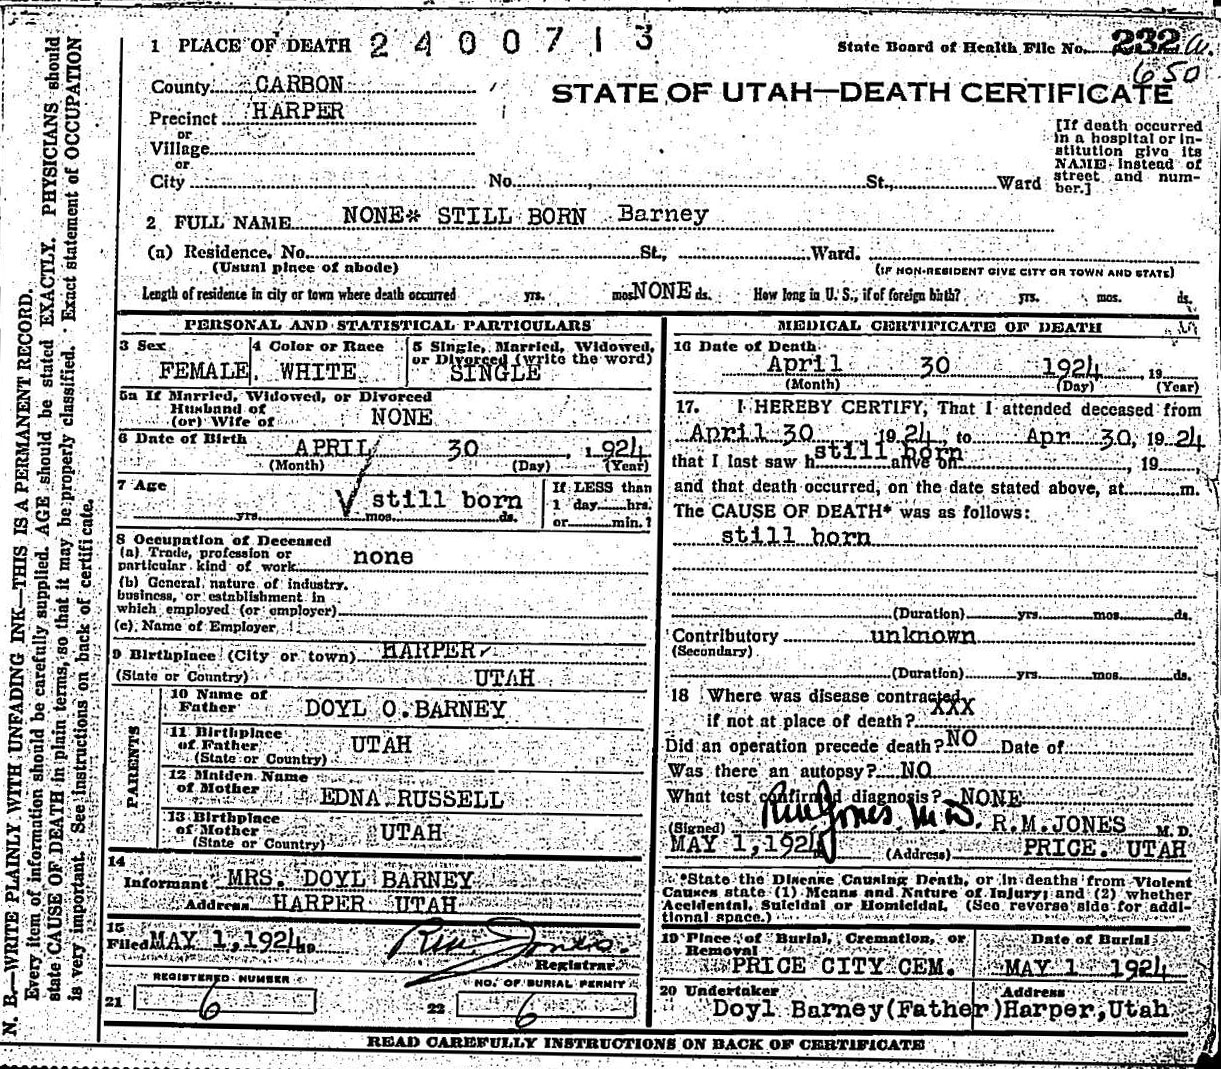 1 PLACE OF DEATH 2400713
State Board of Health File No. 232 a.
650
County CARBON
STATE OF UTAH—DEATH CERTIFICATE
Precinct HARPER
or
Village
or
City No. St., Ward
[If death occurred
in a hospital or in-
stitution give its
NAME instead of
street and num-
ber.]
2 FULL NAME NONE* STILL BORN Barney
(a) Residence. No. St., Ward.
(Usual place of abode) (IF NON-RESIDENT GIVE CITY OR TOWN AND STATE)
Length of residence in city or town where death occurred yrs. mos. NONE ds. How long in U. S., if of foreign birth? yrs. mos. ds.
PERSONAL AND STATISTICAL PARTICULARS
3 Sex 4 Color or Race 5 Single, Married, Widowed,
or Divorced (write the word)
FEMALE. WHITE SINGLE
5a If Married, Widowed, or Divorced
Husband of
(or) Wife of NONE
6 Date of Birth APRIL 30, 1924
(Month) (Day) (Year)
7 Age still born
yrs. mos. ds.
If LESS than
1 day hrs.
or min.?
8 Occupation of Deceased
(a) Trade, profession or
particular kind of work none
(b) General nature of industry,
business, or establishment in
which employed (or employer)
(c) Name of Employer
9 Birthplace (City or town) HARPER
(State or Country) UTAH
PARENTS
10 Name of
Father DOYL O. BARNEY
11 Birthplace
of Father UTAH
(State or Country)
12 Maiden Name
of Mother EDNA RUSSELL
13 Birthplace
of Mother UTAH
(State or Country)
14
Informant MRS. DOYL BARNEY
Address HARPER UTAH
15
Filed MAY 1, 1924 R M Jones.
Registrar.
REGISTERED NUMBER NO. OF BURIAL PERMIT
21 6 22 6
MEDICAL CERTIFICATE OF DEATH
16 Date of Death
April 30 1924, 19
(Month) (Day) (Year)
17. I HEREBY CERTIFY, That I attended deceased from
April 30 1924, to Apr 30, 1924
that I last saw h still born alive on , 19
and that death occurred, on the date stated above, at m.
The CAUSE OF DEATH* was as follows:
still born
(Duration) yrs. mos. ds.
Contributory unknown
(Secondary)
(Duration) yrs. mos. ds.
18 Where was disease contracted
if not at place of death? XXX
Did an operation precede death? NO Date of
Was there an autopsy? NO
What test confirmed diagnosis? NONE
(Signed) R M Jones M.D. R.M.JONES M. D.
MAY 1, 1924 (Address) PRICE. UTAH
*State the Disease Causing Death, or in deaths from Violent
Causes state (1) Means and Nature of Injury; and (2) whether
Accidental, Suicidal or Homicidal. (See reverse side for addi-
tional space.)
19 Place of Burial, Cremation, or
Removal Date of Burial
PRICE CITY CEM. MAY 1 1924
20 Undertaker Address
Doyl Barney(Father)Harper,Utah
READ CAREFULLY INSTRUCTIONS ON BACK OF CERTIFICATE
N. B.—WRITE PLAINLY WITH UNFADING INK—THIS IS A PERMANENT RECORD.
Every item of information should be carefully supplied. AGE should be stated EXACTLY. PHYSICIANS should
state CAUSE OF DEATH in plain terms, so that it may be properly classified. Exact statement of OCCUPATION
is very important. See instructions on back of certificate.